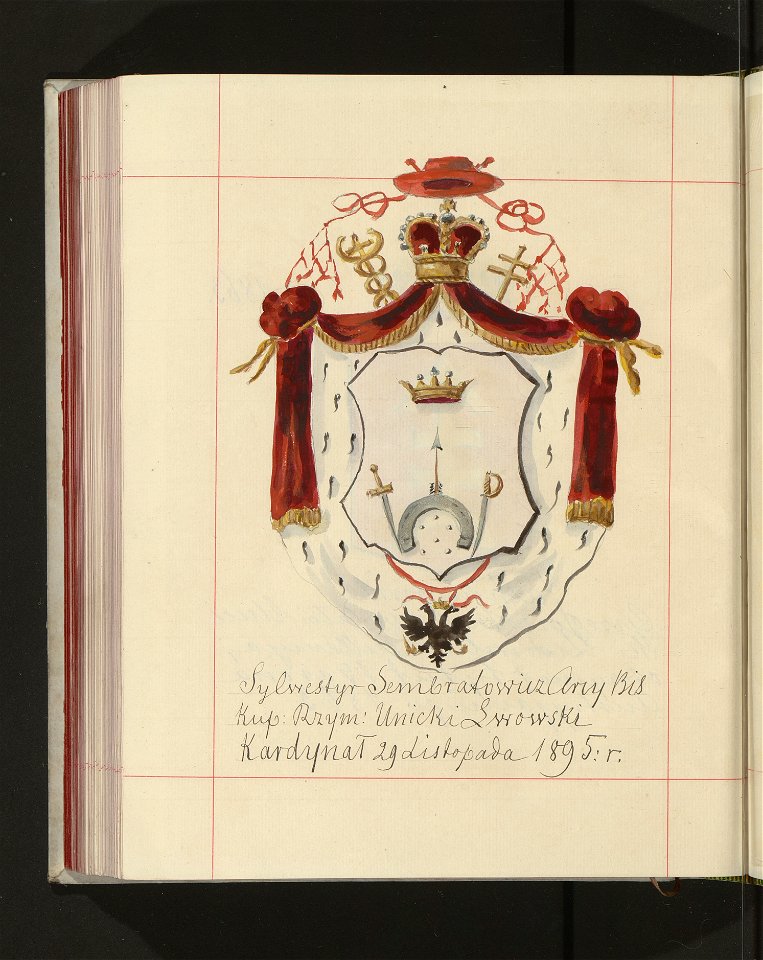 Sylwestyr Sembratowicz Arcy Bis
Kup: Rzym: Unicki Lwowski
Kardynał 29 Listopada 1895: r.